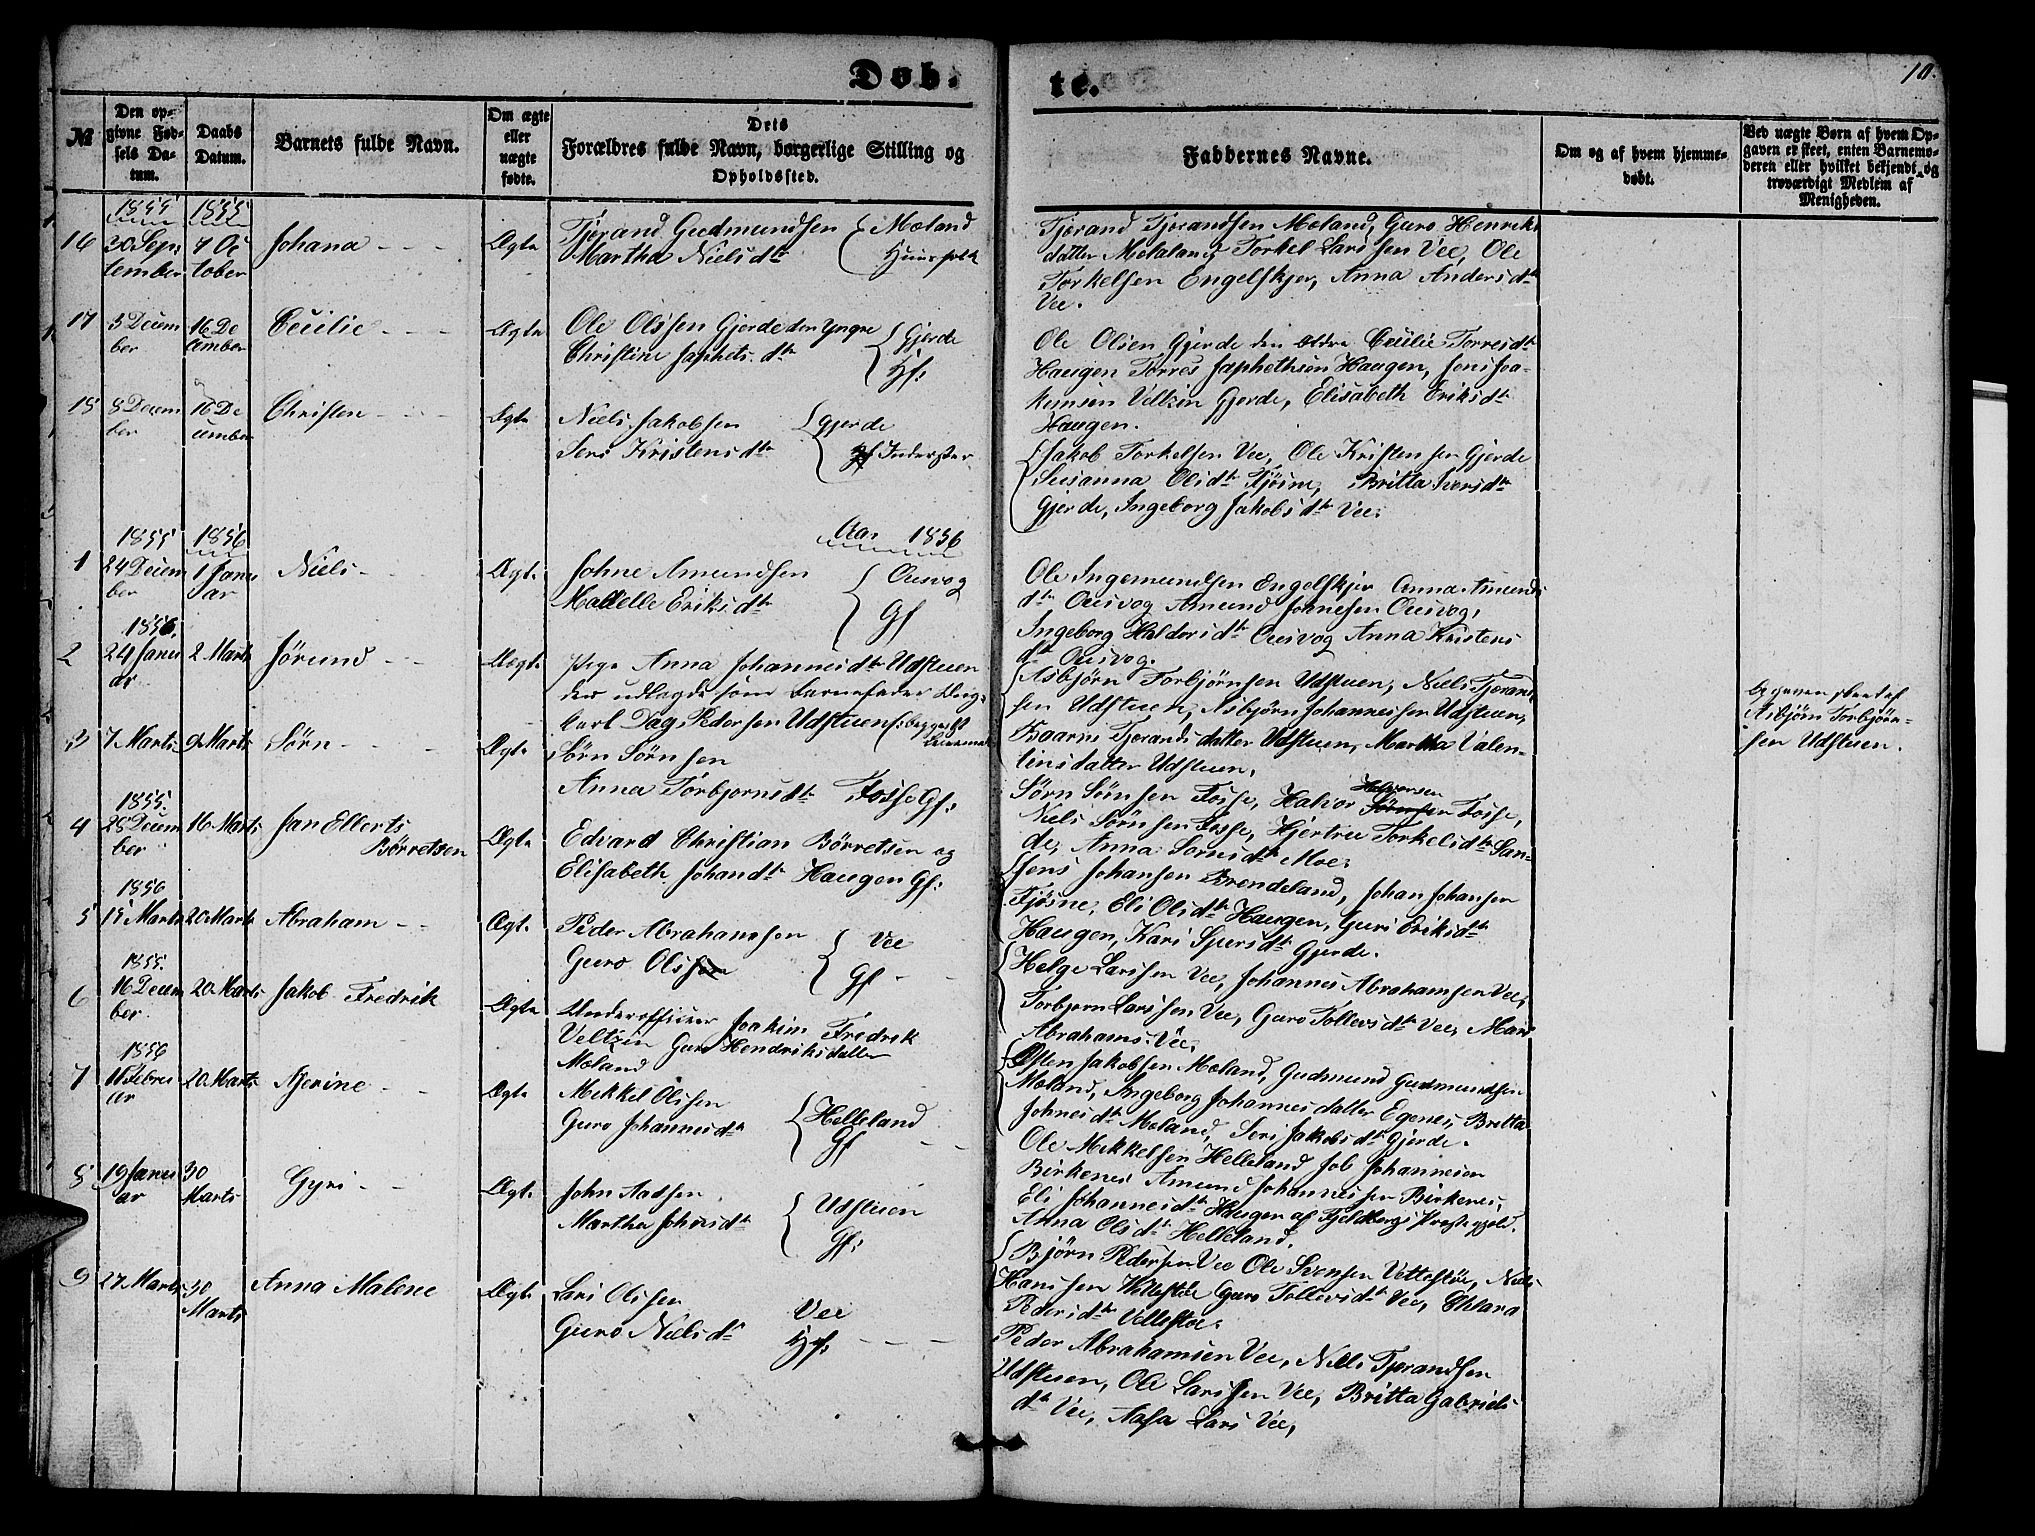 Døb-
te.
10.
№
Den op-
givne Fød-
sels Da-
tum.
Daabs
Datum.
Barnets fulde Navn.
Om ægte
eller
uægte
fødte.
Dets
Forældres fulde Navn, borgerlige Stilling og
Opholdssted.
Faddernes Navne.
Om og af hvem hjemme-
døbt.
Ved uægte Børn af hvem Op-
gaven er skeet, enten Barnemo-
deren eller hvilket bekjendt og
troværdigt Medlem af
Menigheden.
1855 1855
16 30 Sep-
tember 7 Oc
tober Johana Ægte
Tjerand Gudmundsen
Martha Nielsdtr
Moland
Huusfolk
Tjerand Tjerandsen Moland, Guro Henriks
datter Molaland, Torkel Larssen Vee, Ole
Torkelsen Engelskjer, Anna Andersdtr
Vee.
17 3 Decem
ber 16 De
cember Cecilie Ægte
Ole Olssen Gjerde den Yngre
Christine Japhetsdtr
Gjerde
Hf:
Ole Olsen Gjerde den ældre Cecilie Torresdtr
Haugen Torres Japhethsen Haugen, Jens Joa-
kimsen Veltzin Gjerde, Elisabeth Eriksdtr
Haugen.
18 8 Decem
ber 16 De
cember Christen Ægte
Niels Jakobsen
Seri Kristensdtr
Gjerde
Inderster
Jakob Torkelsen Vee, Ole Kristensen Gjerde
Susanna Olsdtr Fjøsne, Britta Iversdtr
Gjerde, Ingeborg Jakobsdtr Vee.
1855 1856
Aar 1856
1 24 Decem
ber 1 Janu
ar Niels Ægte
Johne Amundsen
Malelle Eriksdtr
Ousvog
Gf
Ole Ingemundsen Engelskjer Anna Amunds
dtr Ousvog Amund Johnesen Ousvog,
Ingeborg Haldorsdtr Ousvog Anna Kristens
dtr Ousvog.
1856.
2 24 Janu
ar 2 Marts Jørund Uægte
Pige Anna Johannesdtr Udstuen
der udlagde som Barnefader Ung-
karl Dag Pedersen Udstuen
Asbjørn Torbjørnsen Udstuen, Niels Tjerand
sen Udstuen, Asbjørn Johannessen Udstuen,
Baarni Tjerandsdatter Udstuen, Martha Valen-
tinsdatter Udstuen.
Opgaven skeet af
Asbjørn Torbjørn-
sen Udstuen.
3 7 Marts 9 Marts Sørn Ægte
Sørn Sørnsen
Anna Torbjornsdtr Fosse Gf:
Sørn Sørnsen Fosse, Halvor Halvorsen Fosse,
Niels Sørnsen Fosse, Hjertru Torkelsdtr San-
de, Anna Sornsdtr Moe.
1855.
4 28 Decem
ber 16 Marts Jan Ellerts
Børretsen Ægte
Edvard Christian Børretsen og
Elisabeth Johandtr Haugen Gf:
Jens Johansen Brendeland, Johan Johansen
Fjøsne, Eli Olsdtr Haugen, Guri Eriksdtr
Haugen, Kari Spersdtr Gjerde.
1856
5 15 Marts 20 Marts Abraham Ægte
Peder Abrahamsen
Guro Ols
Vee
Gf
Helge Larssen Vee, Johannes Abrahamsen Vee,
Torbjorn Larssen Vee, Guro Tollevsdtr Vee, Mari
Abrahams. Vee.
1855.
6 16 Decem
ber 20 Marts Jakob Fredrik Ægte
Underofficeer Joakim Fredrik
Veltzin Guro Hendriksdatter
Moland
Osten Jakobsen Moland, Gudmund Gudmundsen
Moland, Ingeborg Johannesdatter Egenes, Britta
Johnesdtr Moland, Seri Jakobsdtr Gjerde.
1856
7 11 Febru
ar 20 Marts Nerine Ægte
Mekkel Olssen
Guro Johannesdtr
Helleland
Gf
Ole Mekkelsen Helleland Job Johannesen
Birkenes Amund Johannessen Birkenes,
Eli Johannesdtr Haugen af Fjeldbergs Præstegjeld.
Anna Olsdtr Helleland.
8 19 Janu
ar 30
Marts Gyri Ægte
John Aadsen
Martha Johnsdtr
Udstuen
Gf:
Bjørn Pedersen Vee Ole Svensen Vettestøe, Niels
Hanssen Vettestøe Guro Tollevsdtr Vee, Chlara
Pedersdtr Vettestøe.
9 27 Marts 30
Marts Anna Malene Ægte
Lars Olssen
Guro Nielsdtr
Vee
Hf:
Peder Abrahamsen Vee, Niels Tjerandsen
Udstuen, Ole Larssen Vee, Britta Gabriels
dtr Vee, Aasa Lars Vee,